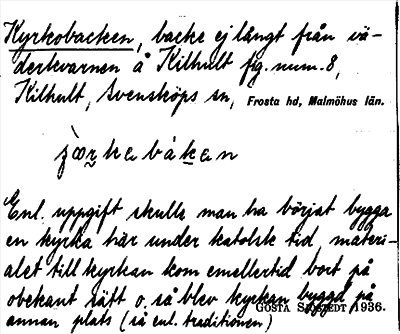 Kyrkobacken, backe ej långt från vä-
derkvarnen å Kilhult fig. num. 8,
Kilhult, Svensköps sn, Frosta hd, Malmöhus län.
Enl. uppgift skulle man ha börjat bygga
en kyrka här under katolsk tid, materi-
alet till kyrkan kom emellertid bort på
obekant sätt o. så blev kyrkan byggd på
annan plats (så enl. traditionen)
GÖSTA SJÖSTEDT 1936.